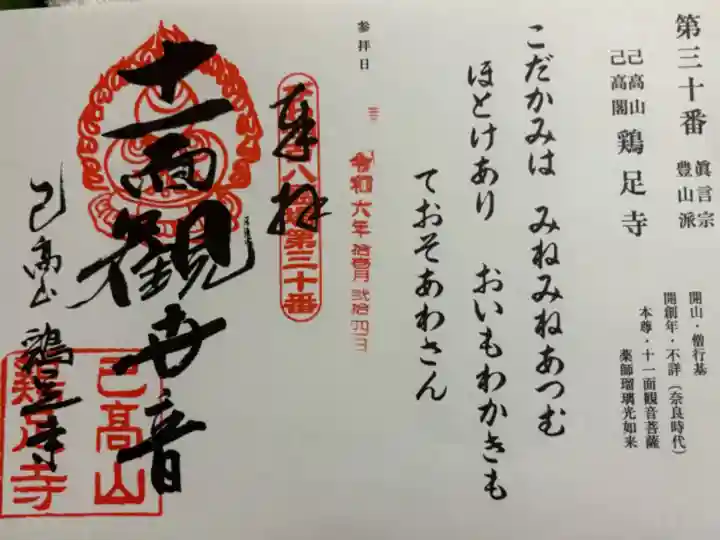 第三十番
眞言宗
豊山派
己高山
己高閣
鶏足寺
開山・僧行基
開創年・不詳(奈良時代)
本尊・十一面観音菩薩
薬師瑠璃光如来
こだかみは みねみねあつむ
ほとけあり おいもわかきも
ておそあわさん
参拝日
令和六年 拾壱月 弐拾四日
奉拝
八 第三十番
十一面観世音
己高山 鶏足寺
己高山
鶏足寺